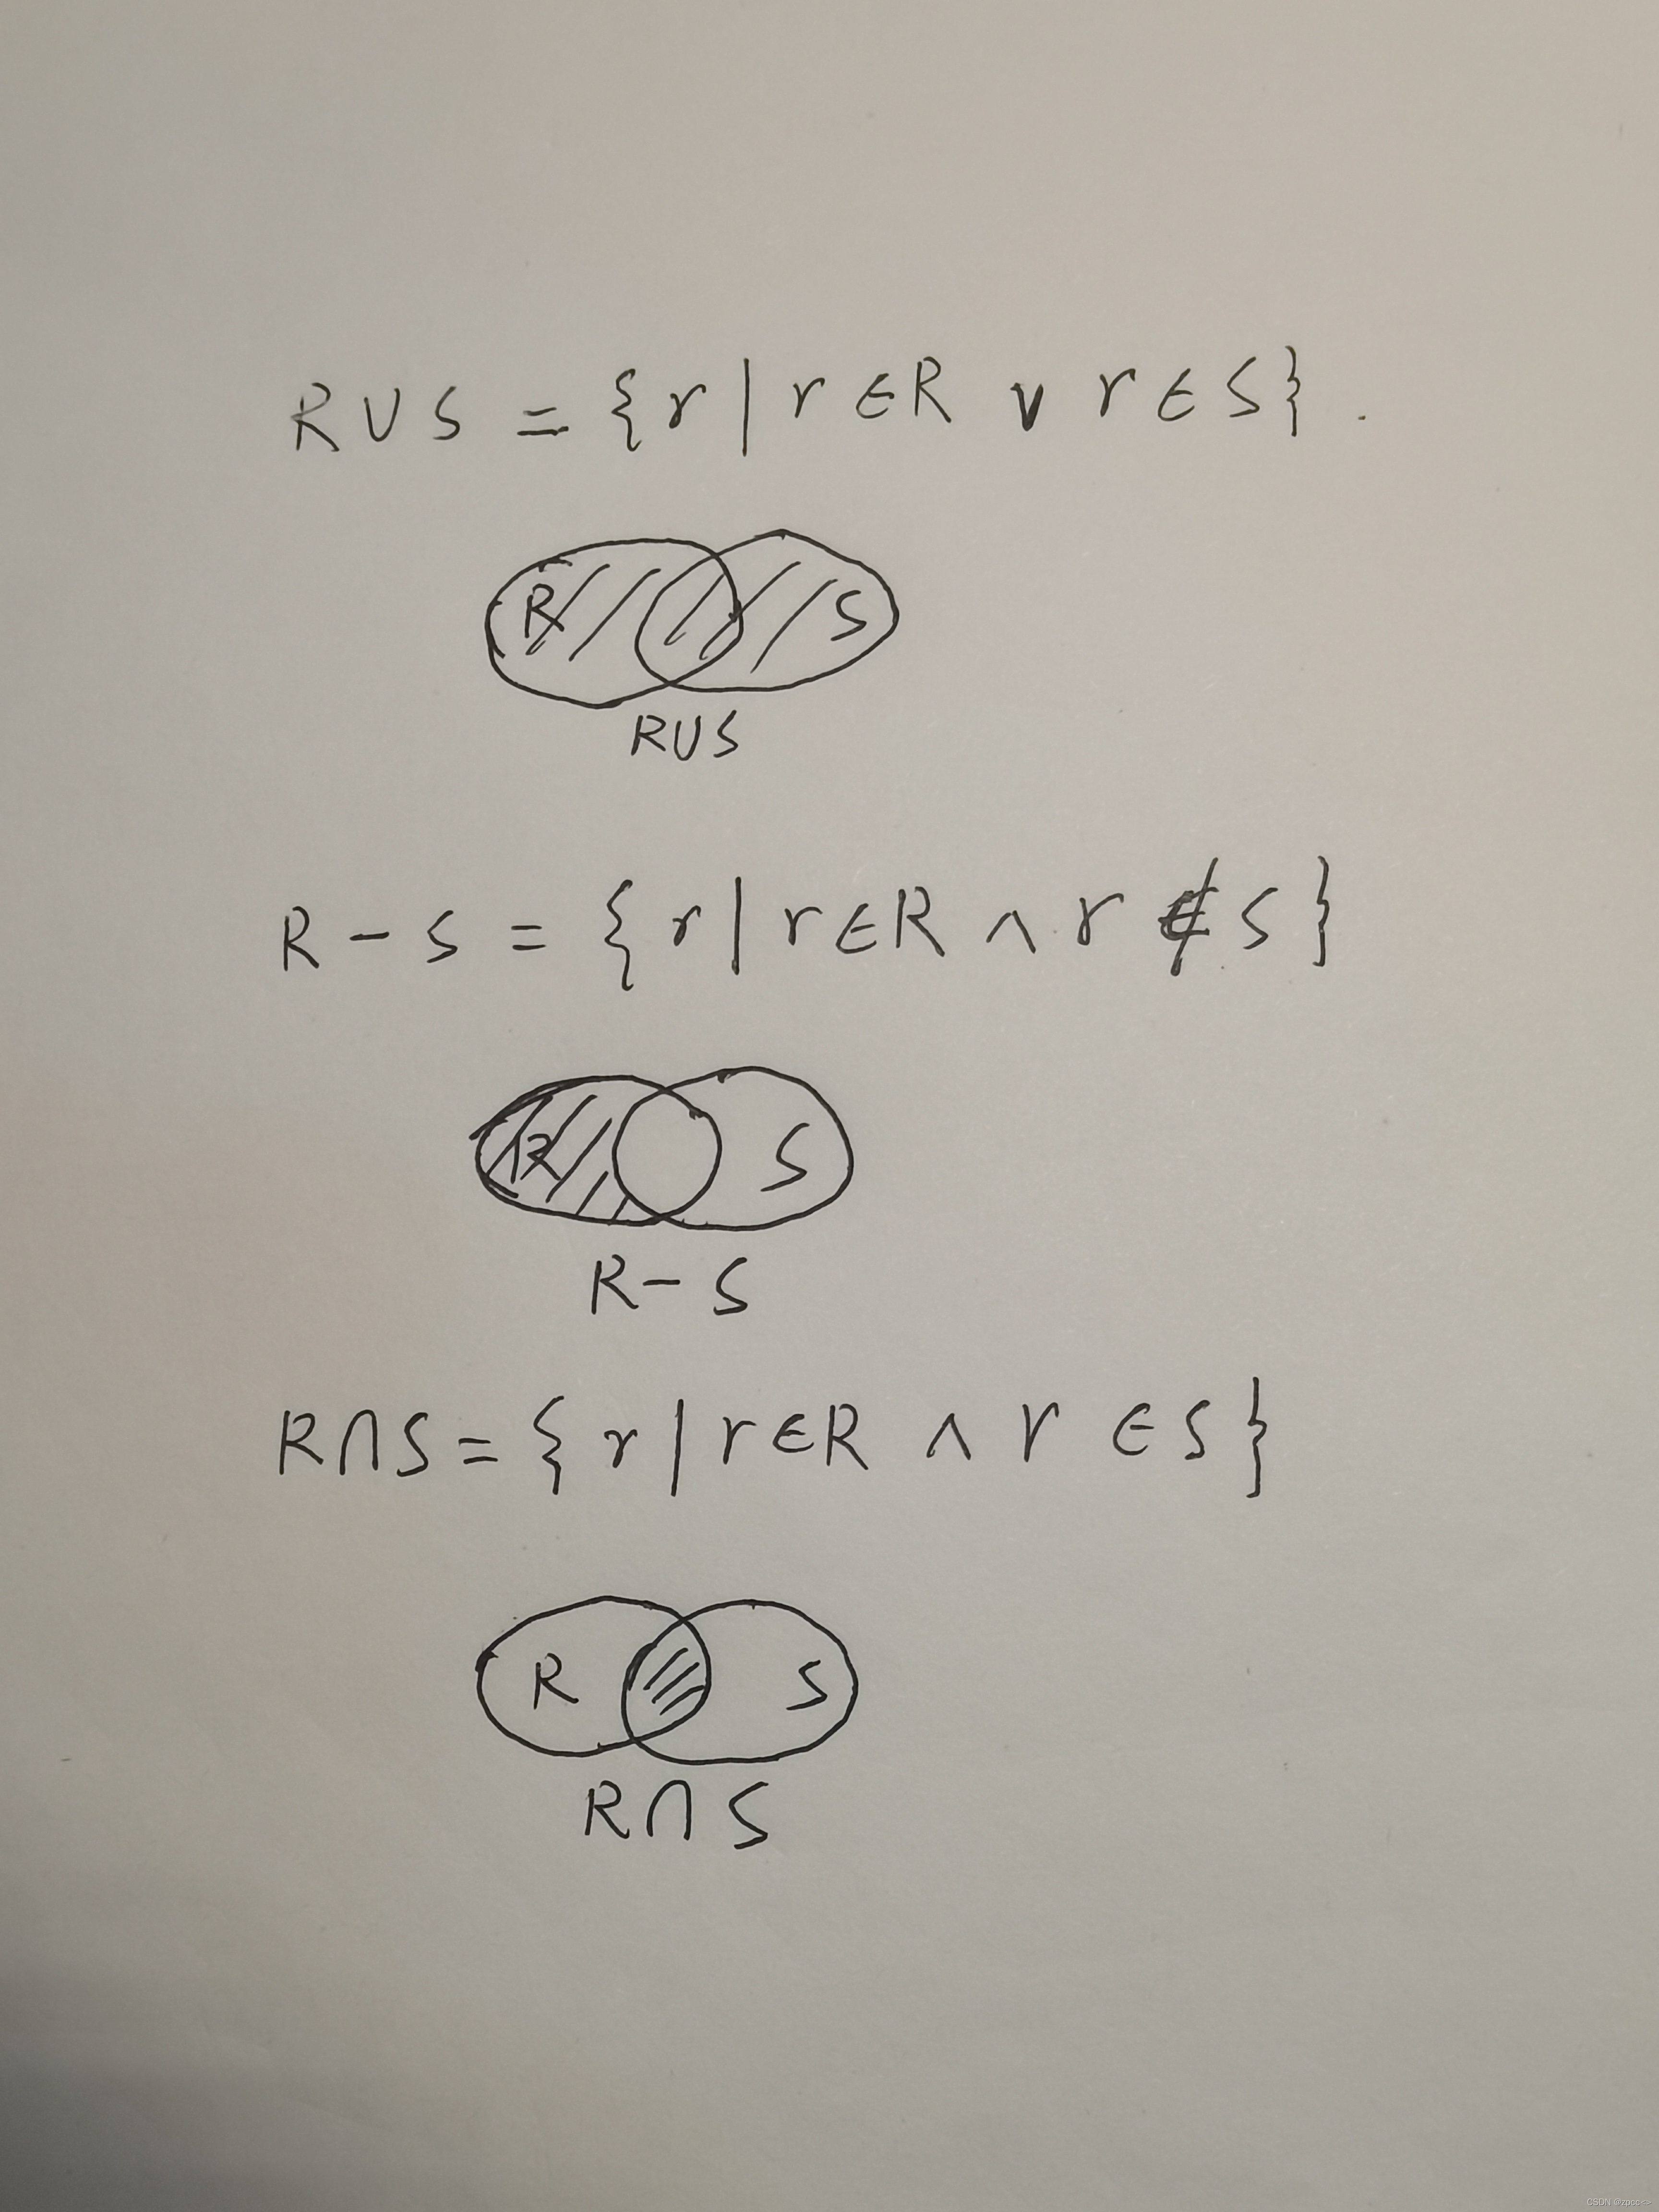 R∪S = {r | r∈R ∨ r∈S}.
R S
R∪S
R - S = {r | r∈R ∧ r∉S}
R S
R - S
R∩S = {r | r∈R ∧ r∈S}
R S
R∩S
CSDN @zpcc<>